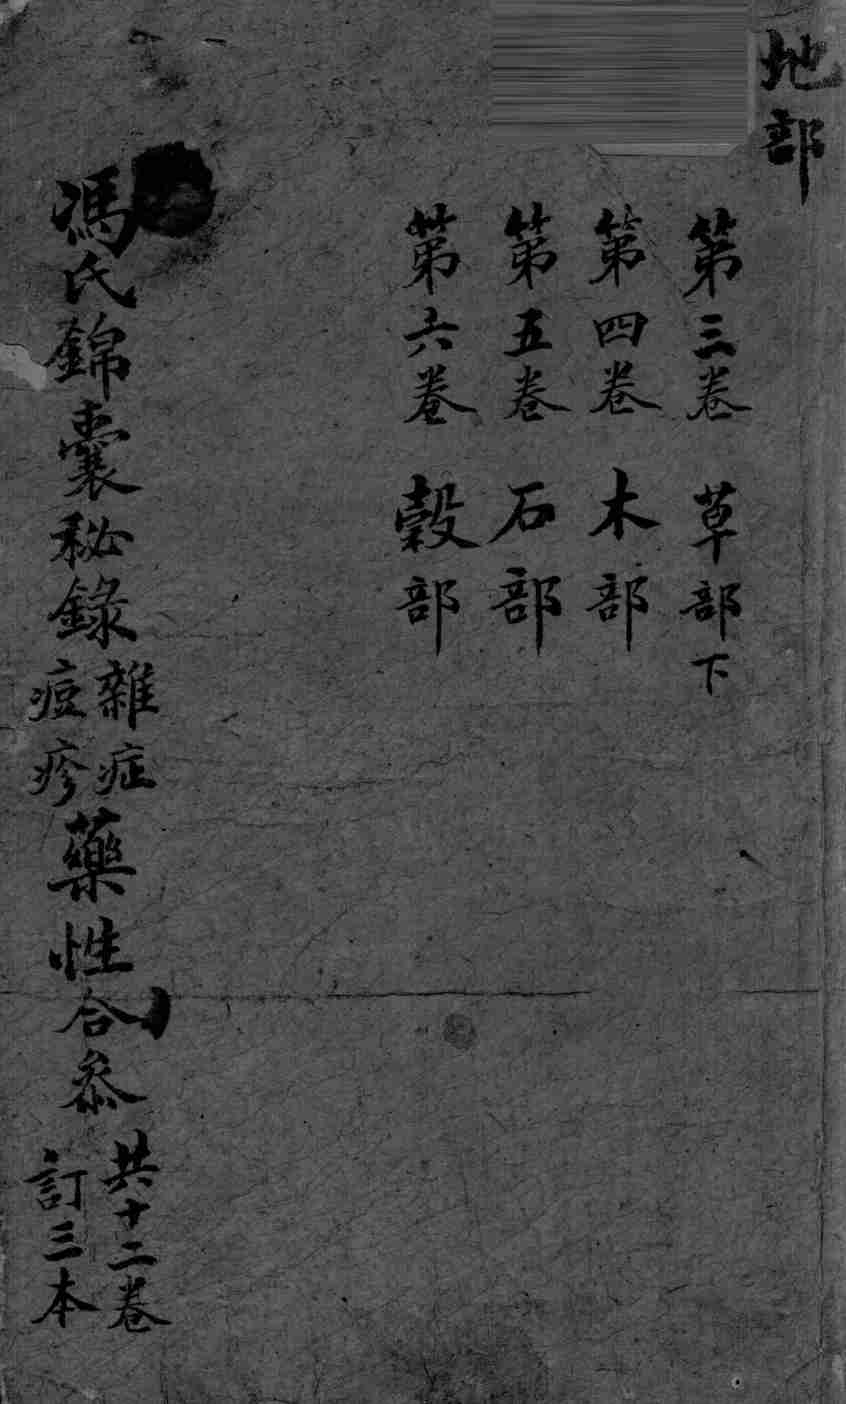 地部
第三卷 草部下
第四卷 木部
第五卷 石部
第六卷 穀部
馮氏錦囊秘錄雜症痘疹藥性合叅共十二卷訂三本